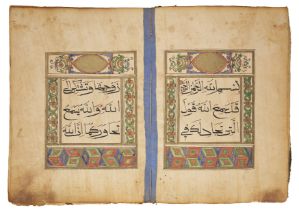 بسم الله الرحمن الرحيم
قد سمع الله قول
التي تجادلك في
زوجها وتشتكي إلى
الله والله يسمع
تحاوركما إن الله